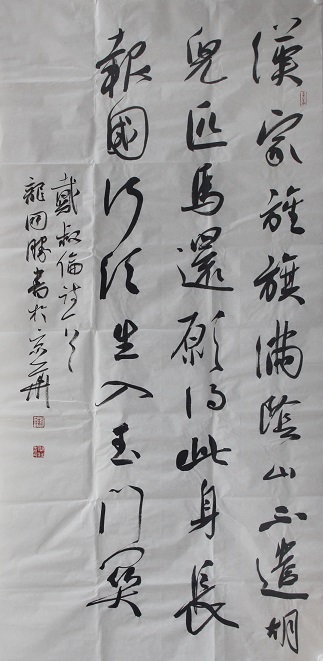 漢家旌旗滿陰山不遣胡
兒匹馬還願得此身長
報國何須生入玉門關
戴叔倫詩一首
龍勝書於京華